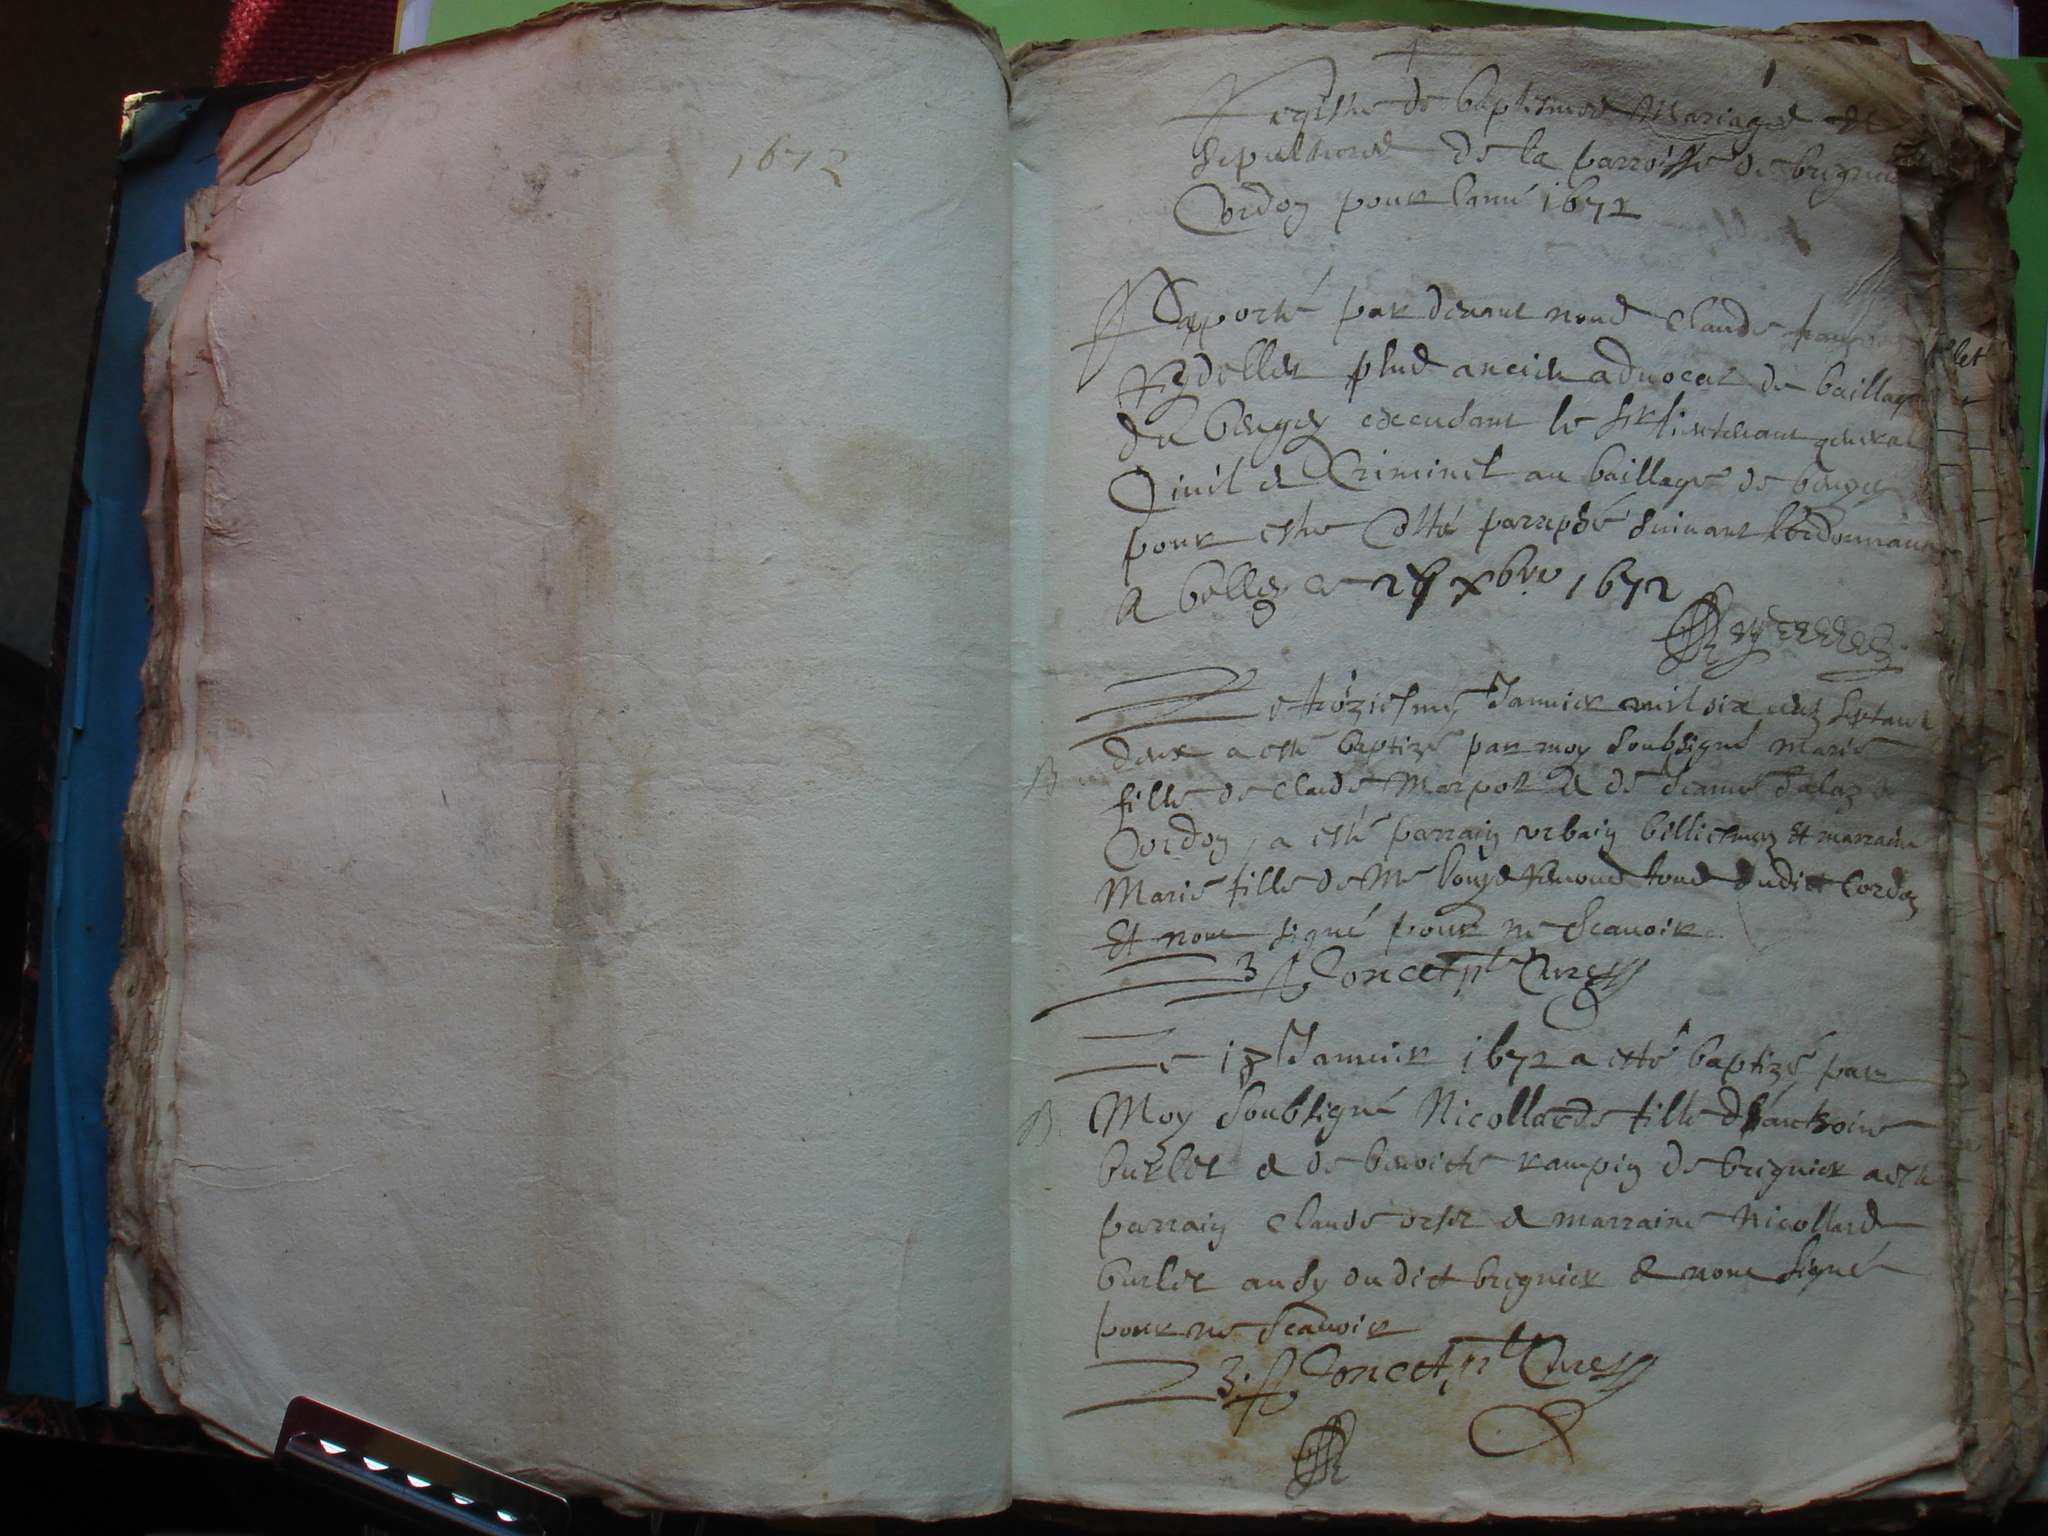 1672
Registre de baptismes Mariages et
sepultures de la parroisse de bregnier
Cordon pour lanné 1672
Rapporté par devant nous Claude
Reydellet plus ancien advocat de baillage
du beugey excusant le sr lieutenant general
Civil & Criminel au baillage de beugey
pour estre Cotté parraphé suivant lordonnance
A belley ce xbre 1672
Le troziesme Janvier mil six centz septante
deux a esté baptizé par moy soubsigné Marie
B fille de Claude Marpoz & de Jeanne
Cordon, a esté parrain urbain billiemaz Et marraine
Marie fille de Me louys tous dudict Cordon
Et nont signé pour ne scavoir
Poncet pt Cure
Le 18 Janvier 1672 a esté baptizé par
B. Moy soubsigné Nicollarde fille danthoine
burlet & de benoicte rampin de bregnier a esté
parrain Claude & marraine Nicollarde
burlet aussy dudict bregnier & nont signé
pour ne scavoir
Poncet, pt Cure